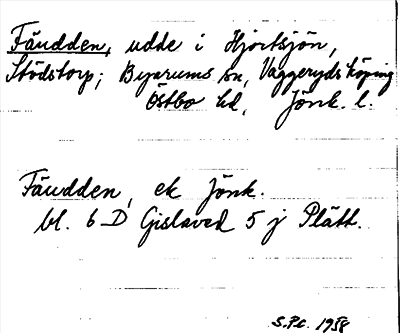 Fäudden, udde i Hjortsjön,
Stödstorp; Byarums sn, Vaggeryds köping
Östbo hd, Jönk. l.
Fäudden, ek Jönk.
bl. 6 D Gislaved 5 j Plätt.
S.P.C. 1958